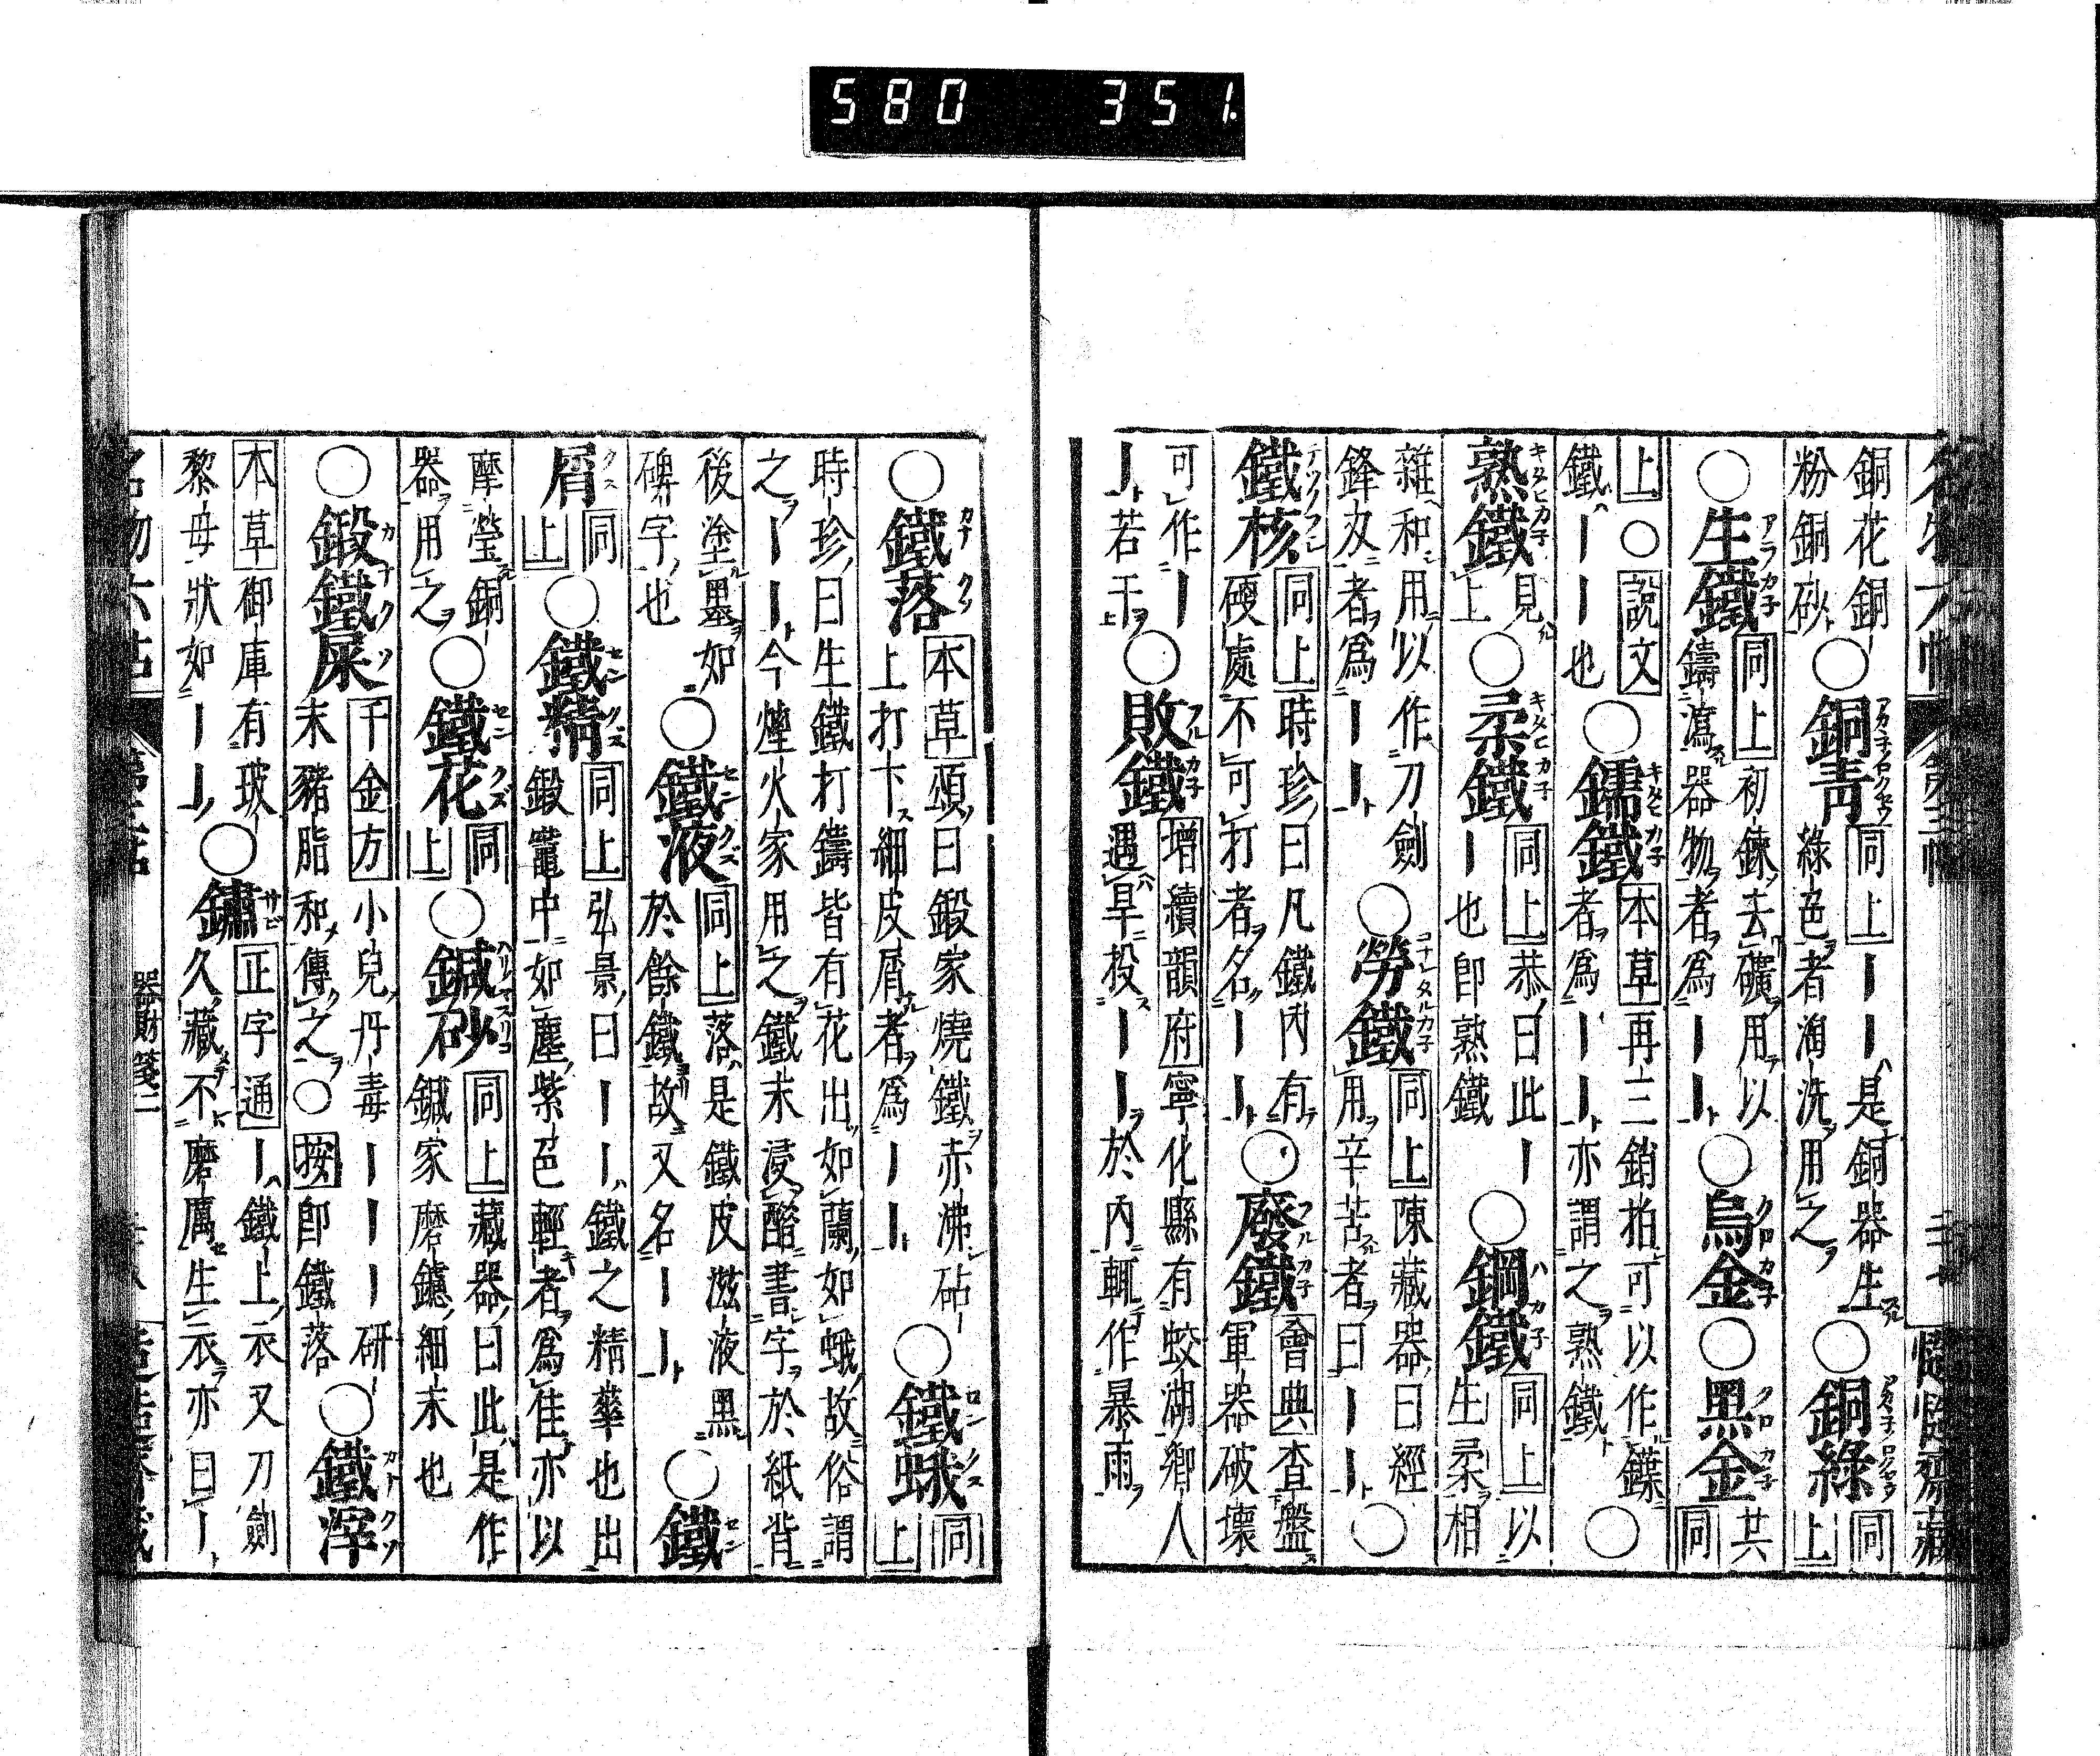 580 351.
銅花銅
粉銅砂 ○銅青 同上 ——是銅器生
綠色者淘洗用之 ○銅綠 同上
○生鐵 同上 初鍊去礦用以
鑄瀉器物者爲—— ○烏金 ○黑金 共同
上 ○說文
鐵——也 ○鑐鐵 本草 再三銷拍可以作鍱
者爲——亦謂之熟鐵 ○
熟鐵 見上 ○柔鐵 同上 恭曰此—
—也卽熟鐵 ○鋼鐵 同上 以生柔相
雜和用以作刀劍
鋒刃者爲—— ○勞鐵 同上 陳藏器曰經
用辛苦者曰—— ○
鐵核 同上 時珍曰凡鐵內有
硬處不可打者名—— ○廢鐵 會典 查盤
軍器破壞
可作—
—若干 ○敗鐵 增續韻府 寧化縣有蛟湖鄉人
遇旱投——於內輒作暴雨
○鐵落 本草 頌曰鍛家燒鐵赤沸砧
上打下細皮屑者爲—— ○鐵蛾 同上
時珍曰生鐵打鑄皆有花出如蘭如蛾故俗謂
之——今煙火家用之鐵末浸醋書字於紙背
後塗墨如
碑字也 ○鐵液 同上 落是鐵皮滋液黑
於餘鐵故又名—— ○鐵
屑 同上 ○鐵精 同上 弘景曰——鐵之精華也出
鍛竈中如塵紫色輕者爲佳亦以
摩瑩銅
器用之 ○鐵花 同上 ○鍼砂 同上 藏器曰此是作
鍼家磨鑢細末也
○鍛鐵屎 千金方 小兒丹毒———研
末豬脂和傳之 ○按卽鐵落 ○鐵滓
本草 御庫有玻
黎母狀如—— ○鏽 正字通 —鐵上衣又刀劍
久藏不磨厲生衣亦曰—
器財箋二